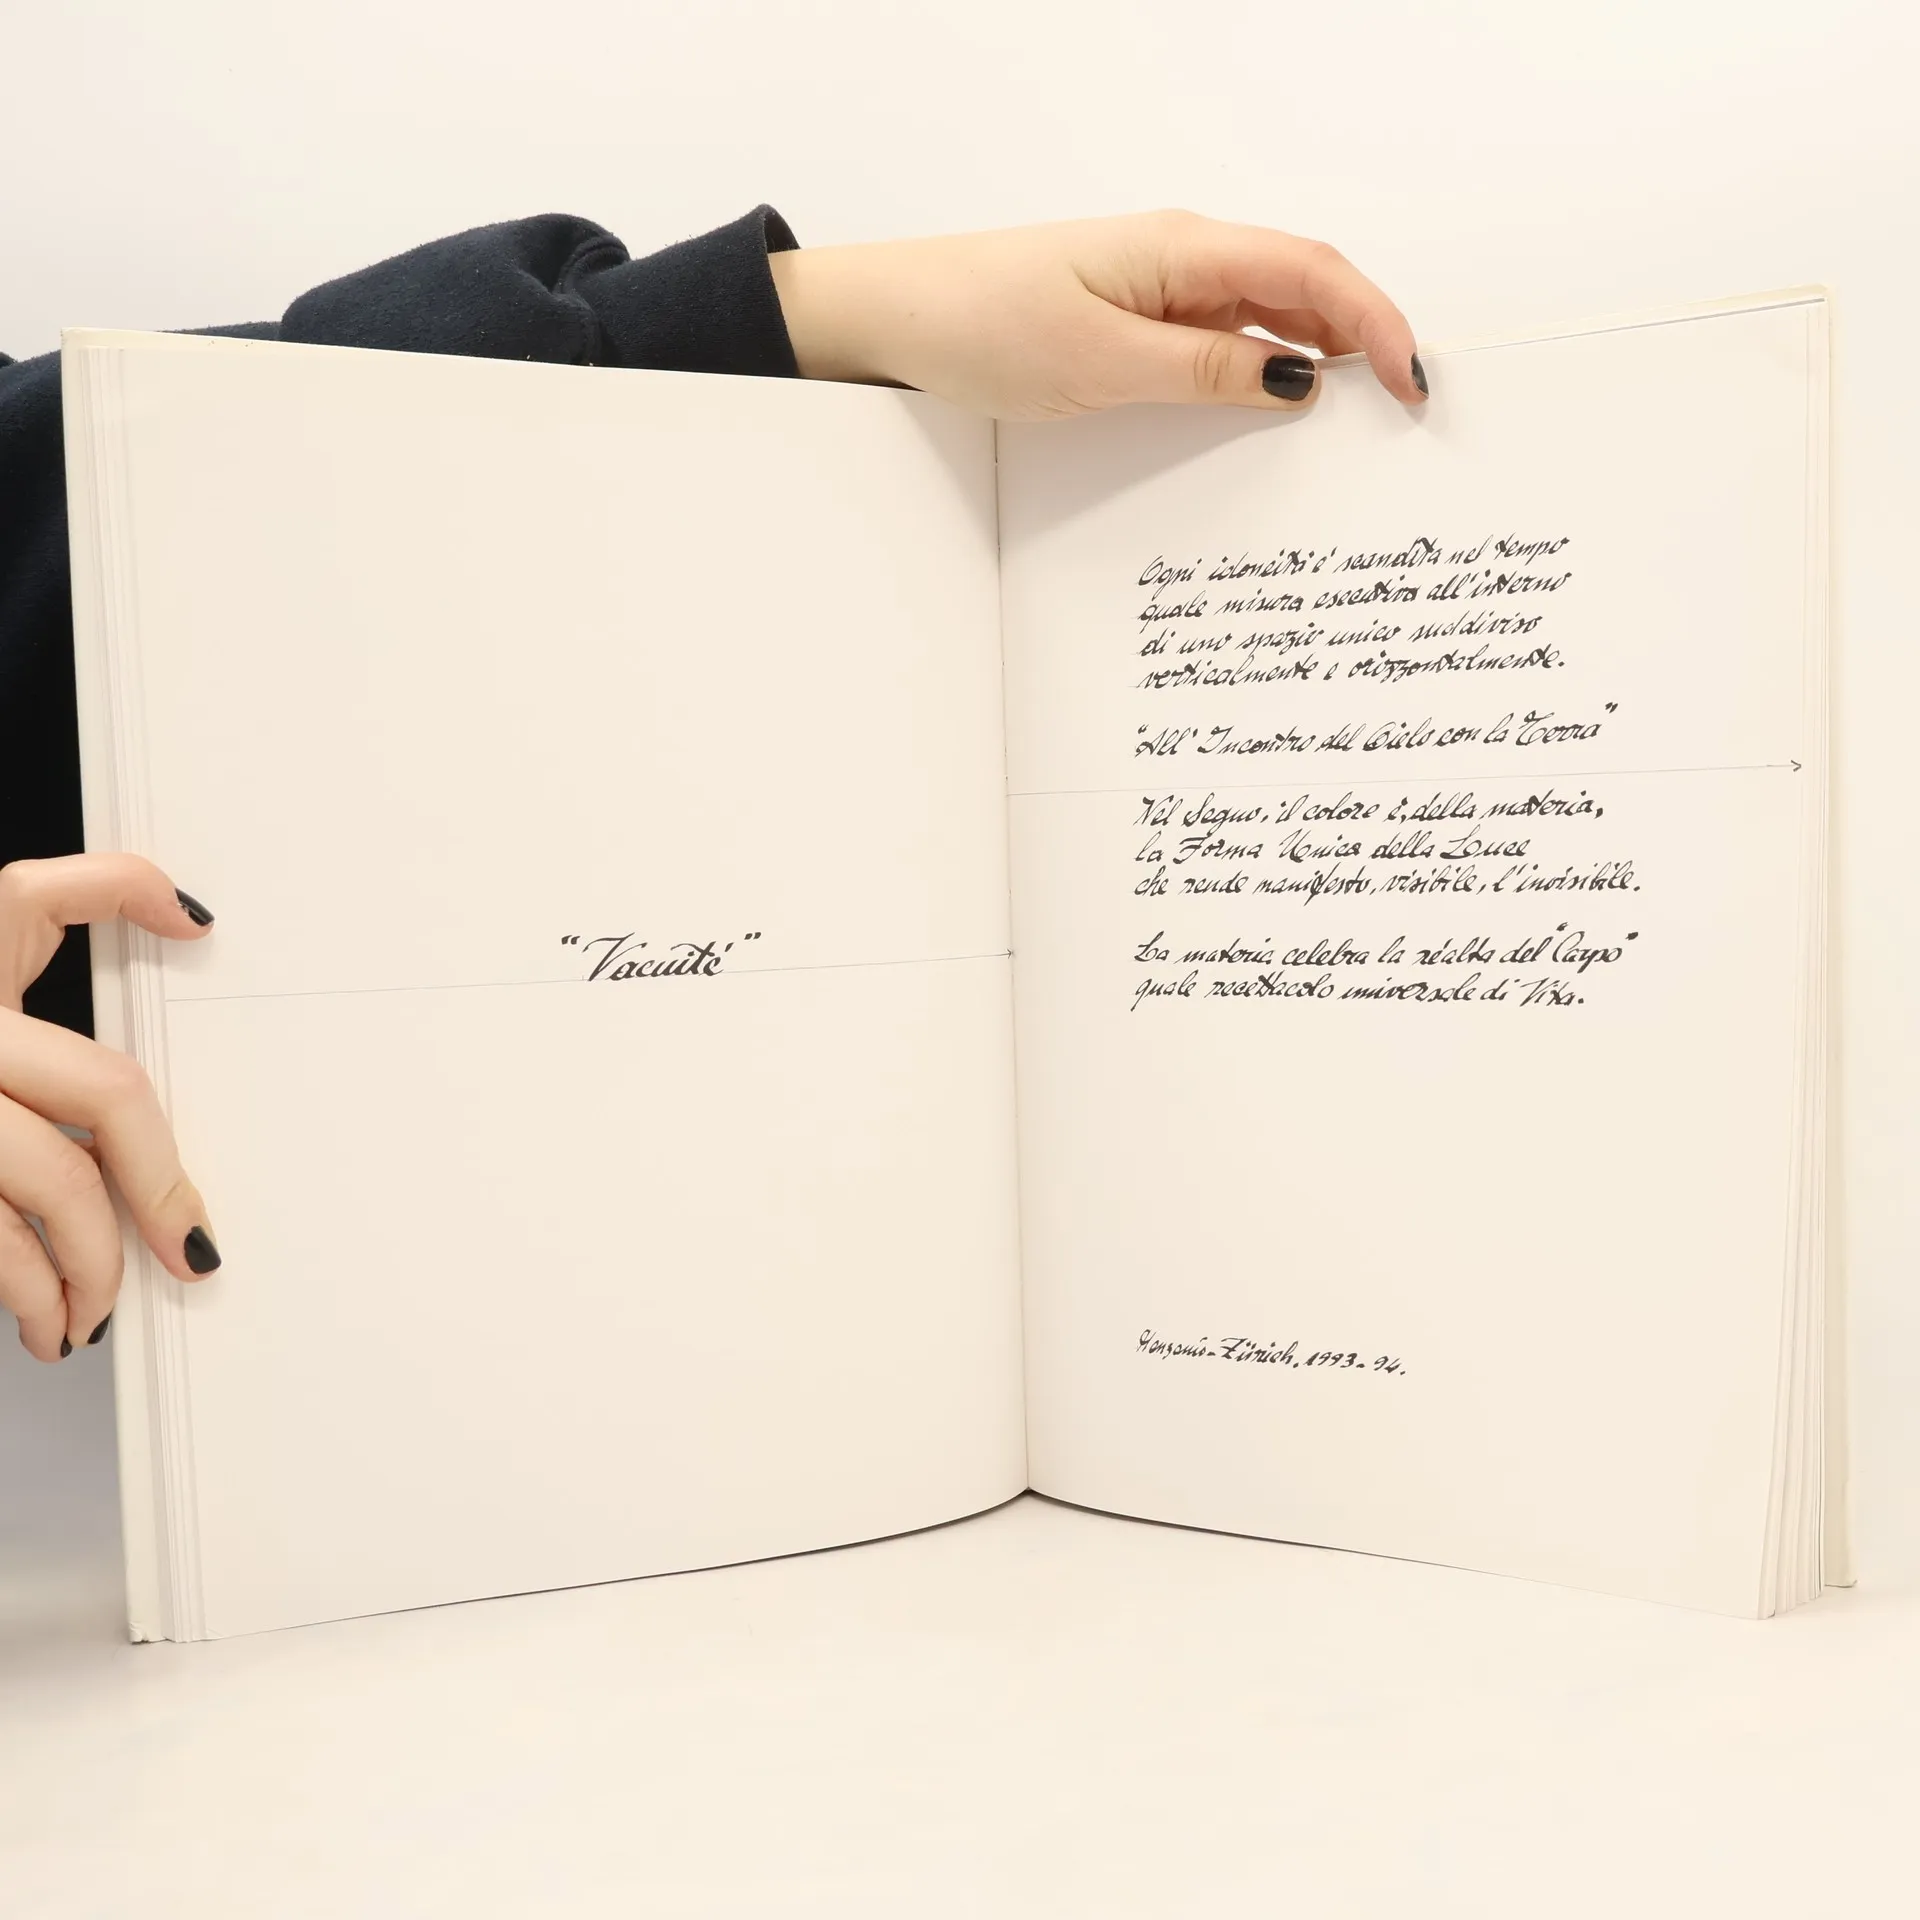 "Vacuité"
Ogni idoneità é scandita nel tempo
quale misura esecutiva all'interno
di uno spazio unico suddiviso
verticalmente e orizzontalmente.
"All' Incontro del Cielo con la Terra"
Nel Segno, il colore è, della materia,
la Forma Unica della Luce
che rende manifesto, visibile, l'invisibile.
La materia celebra la réalta del "Corpo"
quale recettacolo universale di Vita.
Zürich, 1993-94.